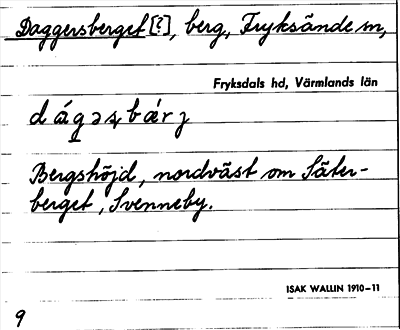 Daggersberget [?], berg, Fryksände sn,
Fryksdals hd, Värmlands län
Bergshöjd, nordväst om Säter-
berget, Svenneby.
ISAK WALLIN 1910–11
9